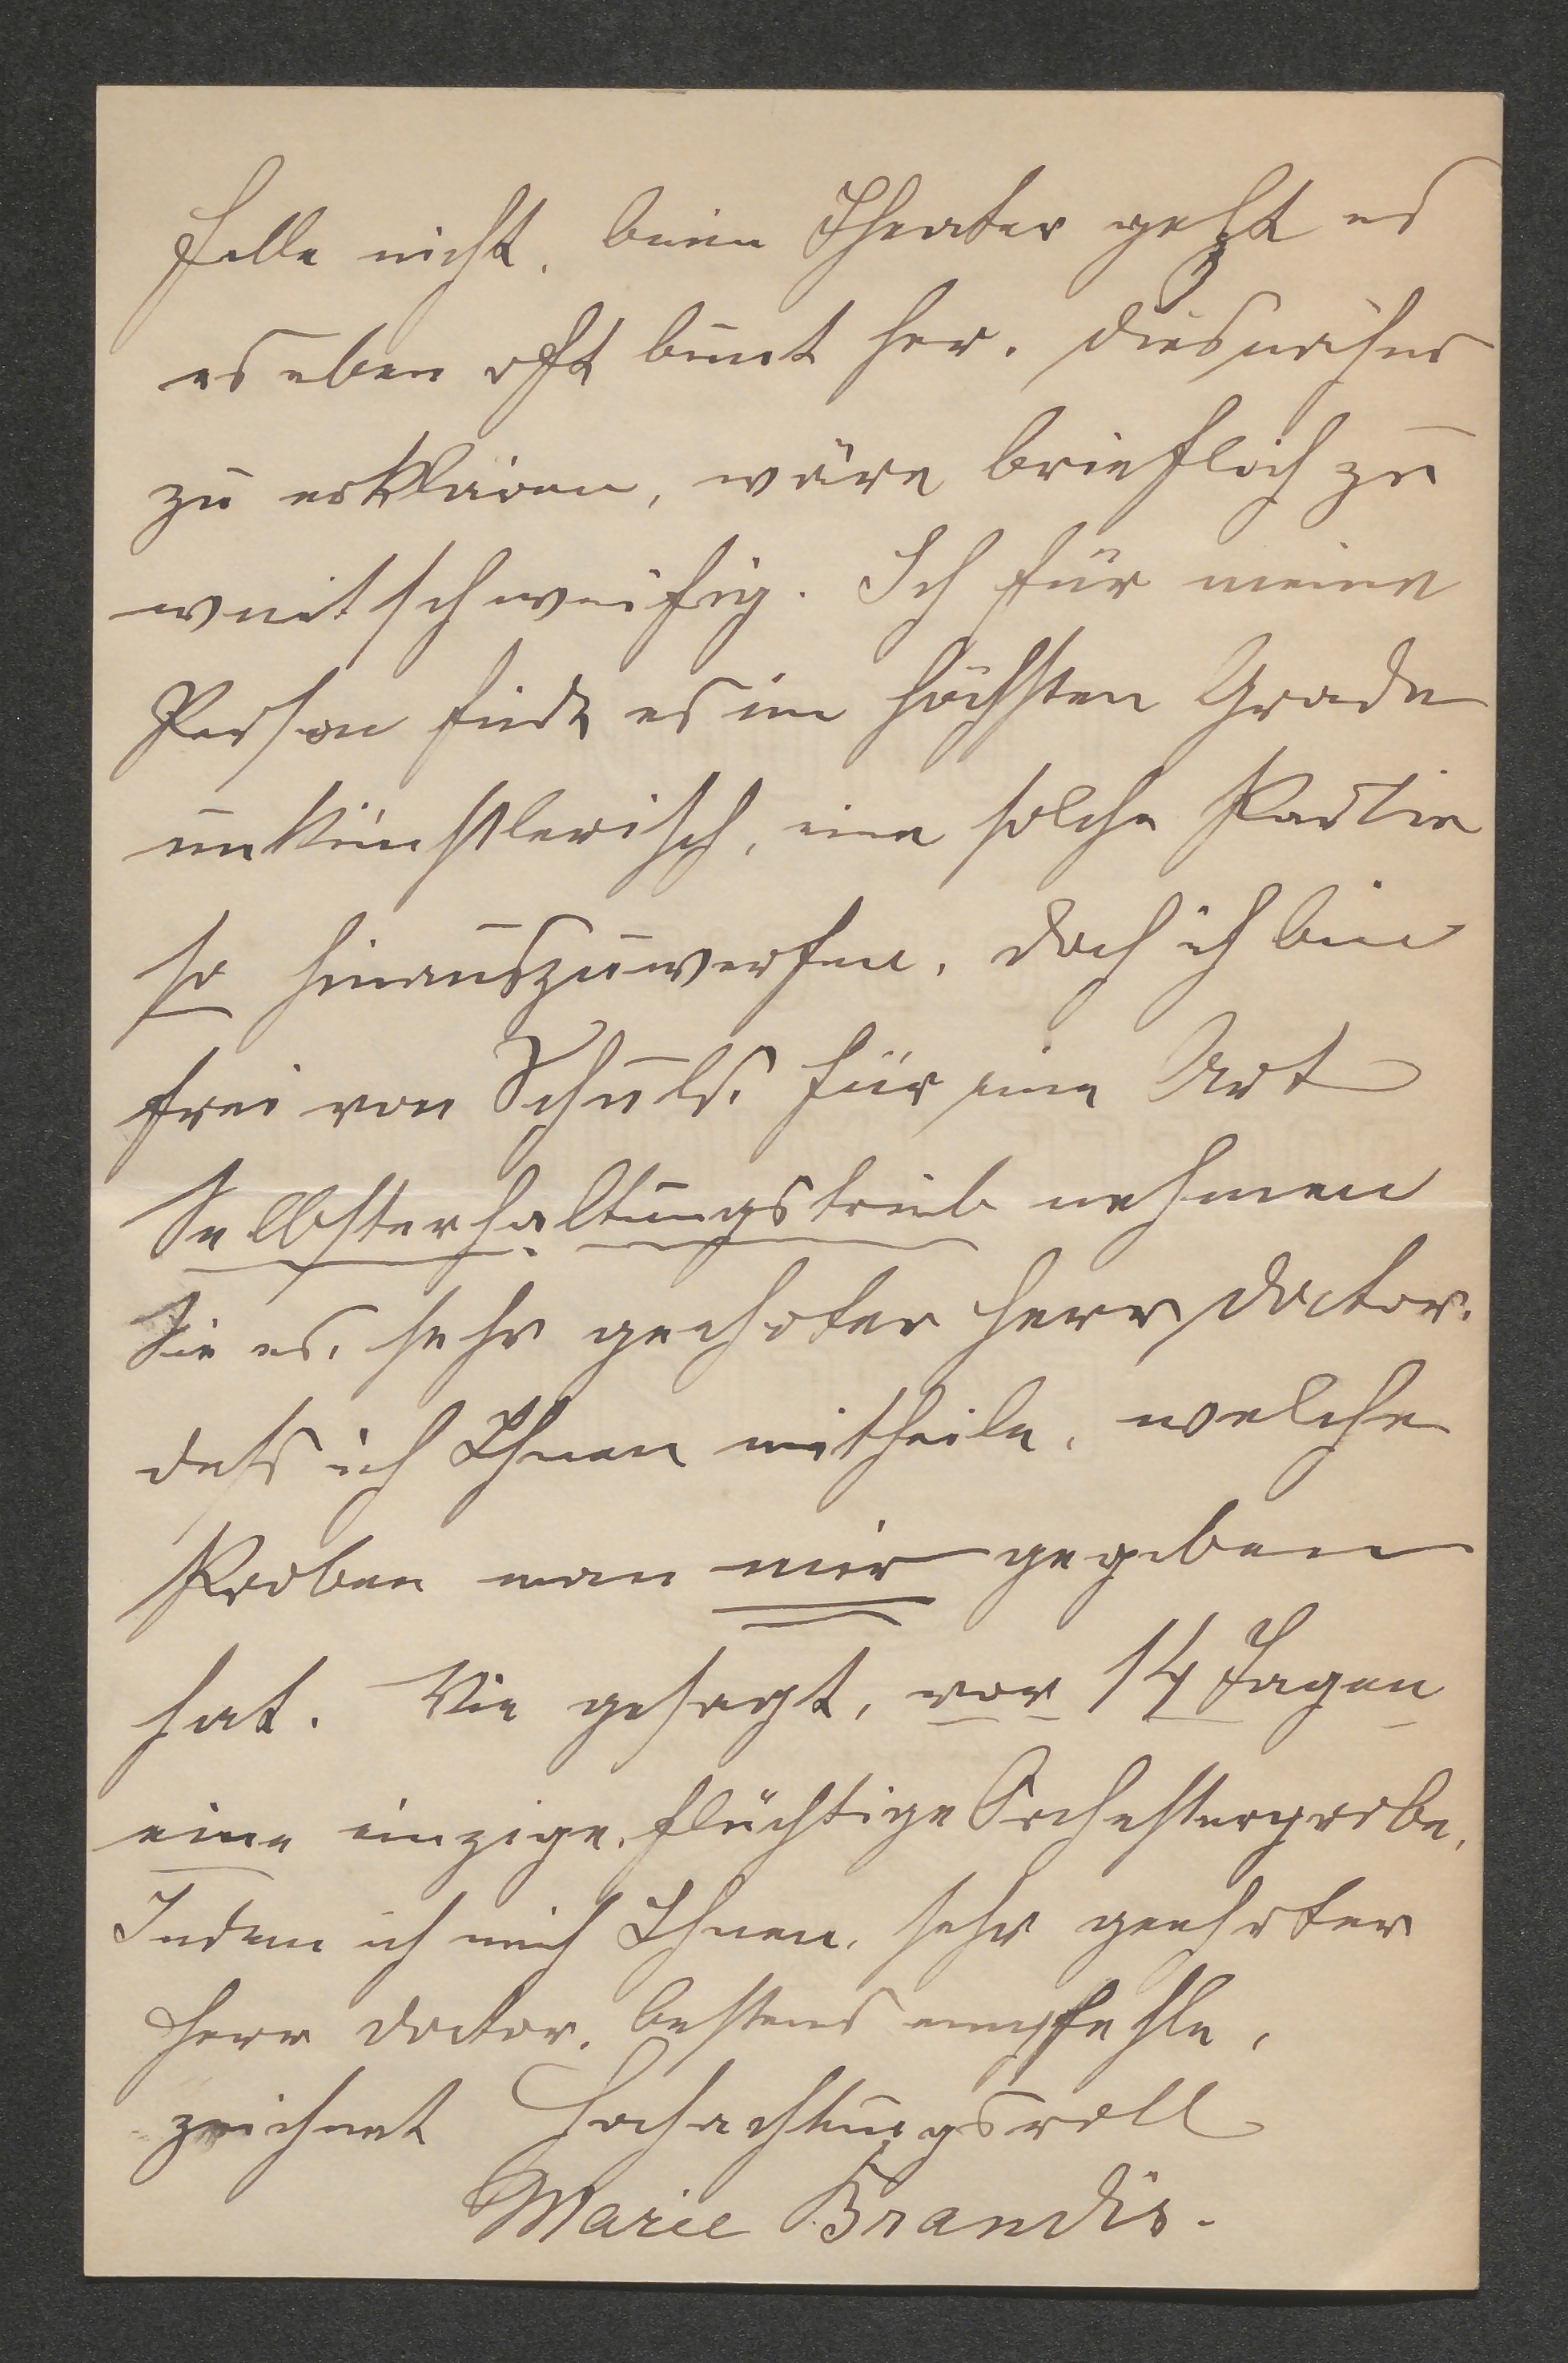 Falle nicht, beim Theater geht es
es eben oft bunt her. Dies näher
zu erklären, wäre brieflich zu
weitschweifig. Ich für meine
Person finde es im höchsten Grade
unkünstlerisch, eine solche Partie
so hinauszuwerfen, doch ich bin
frei von Schuld. Für eine Art
Selbsterhaltungstrieb nehmen
Sie es, sehr geehrter Herr Doctor,
daß ich Ihnen mittheile, welche
Proben man mir gegeben
hat. Wie gesagt, vor 14 Tagen
eine einzige, flüchtige Orchesterprobe.
Indem ich mich Ihnen, sehr geehrter
Herr Doctor, bestens empfehle,
zeichnet Hochachtungsvoll
Marie Brandis.